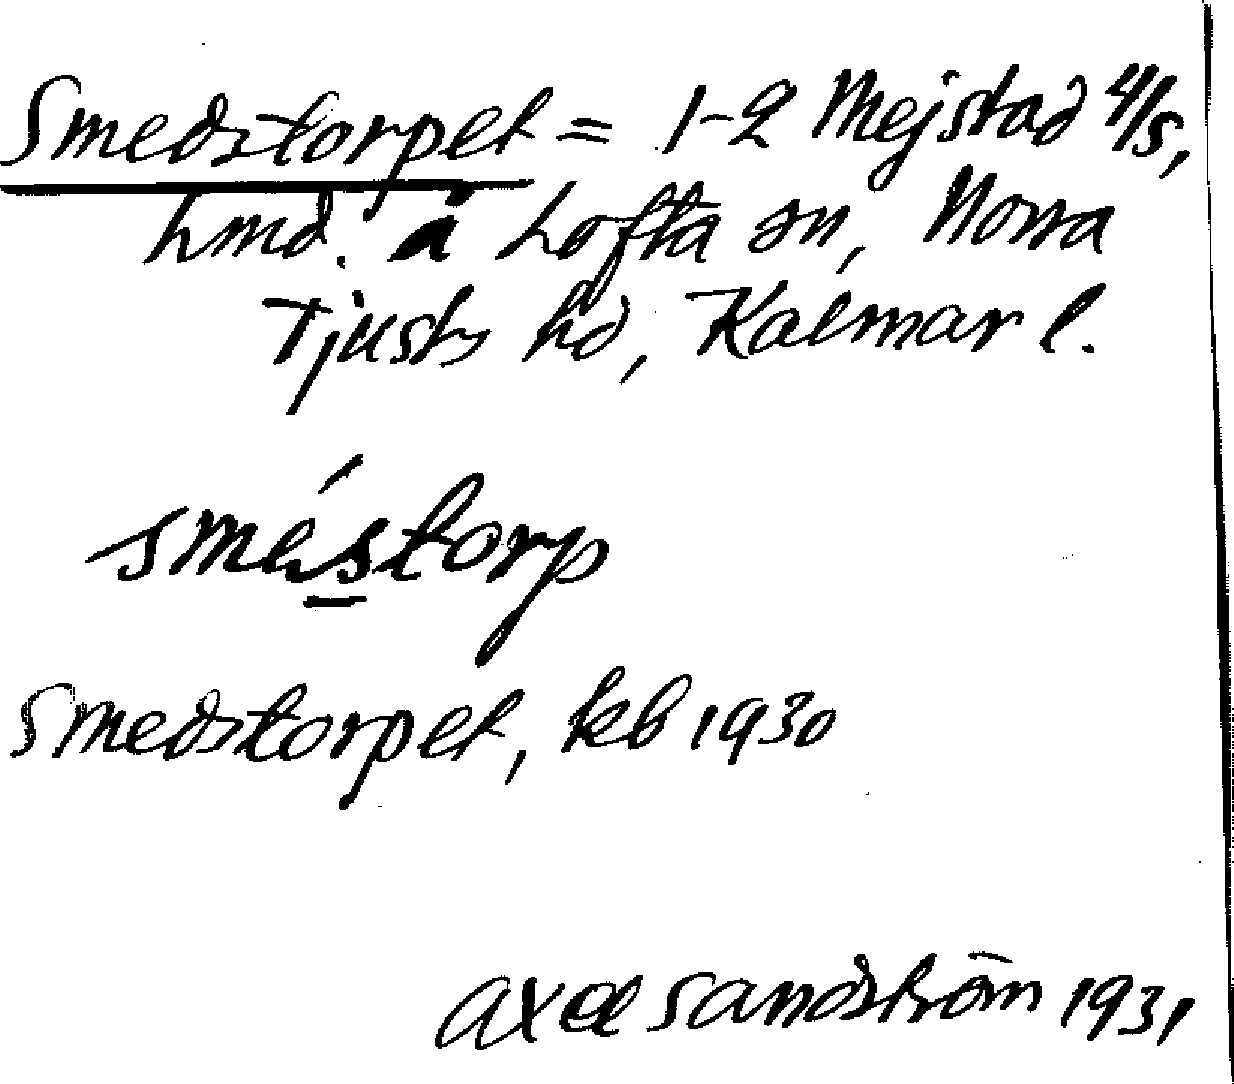 Smedstorpet = 1-2 Mejstad 4/5,
hmd. å Lofta sn, Norra
Tjusts hd, Kalmar l.
smé́storp
Smedstorpet, keb 1930
Axel Sandström 1931